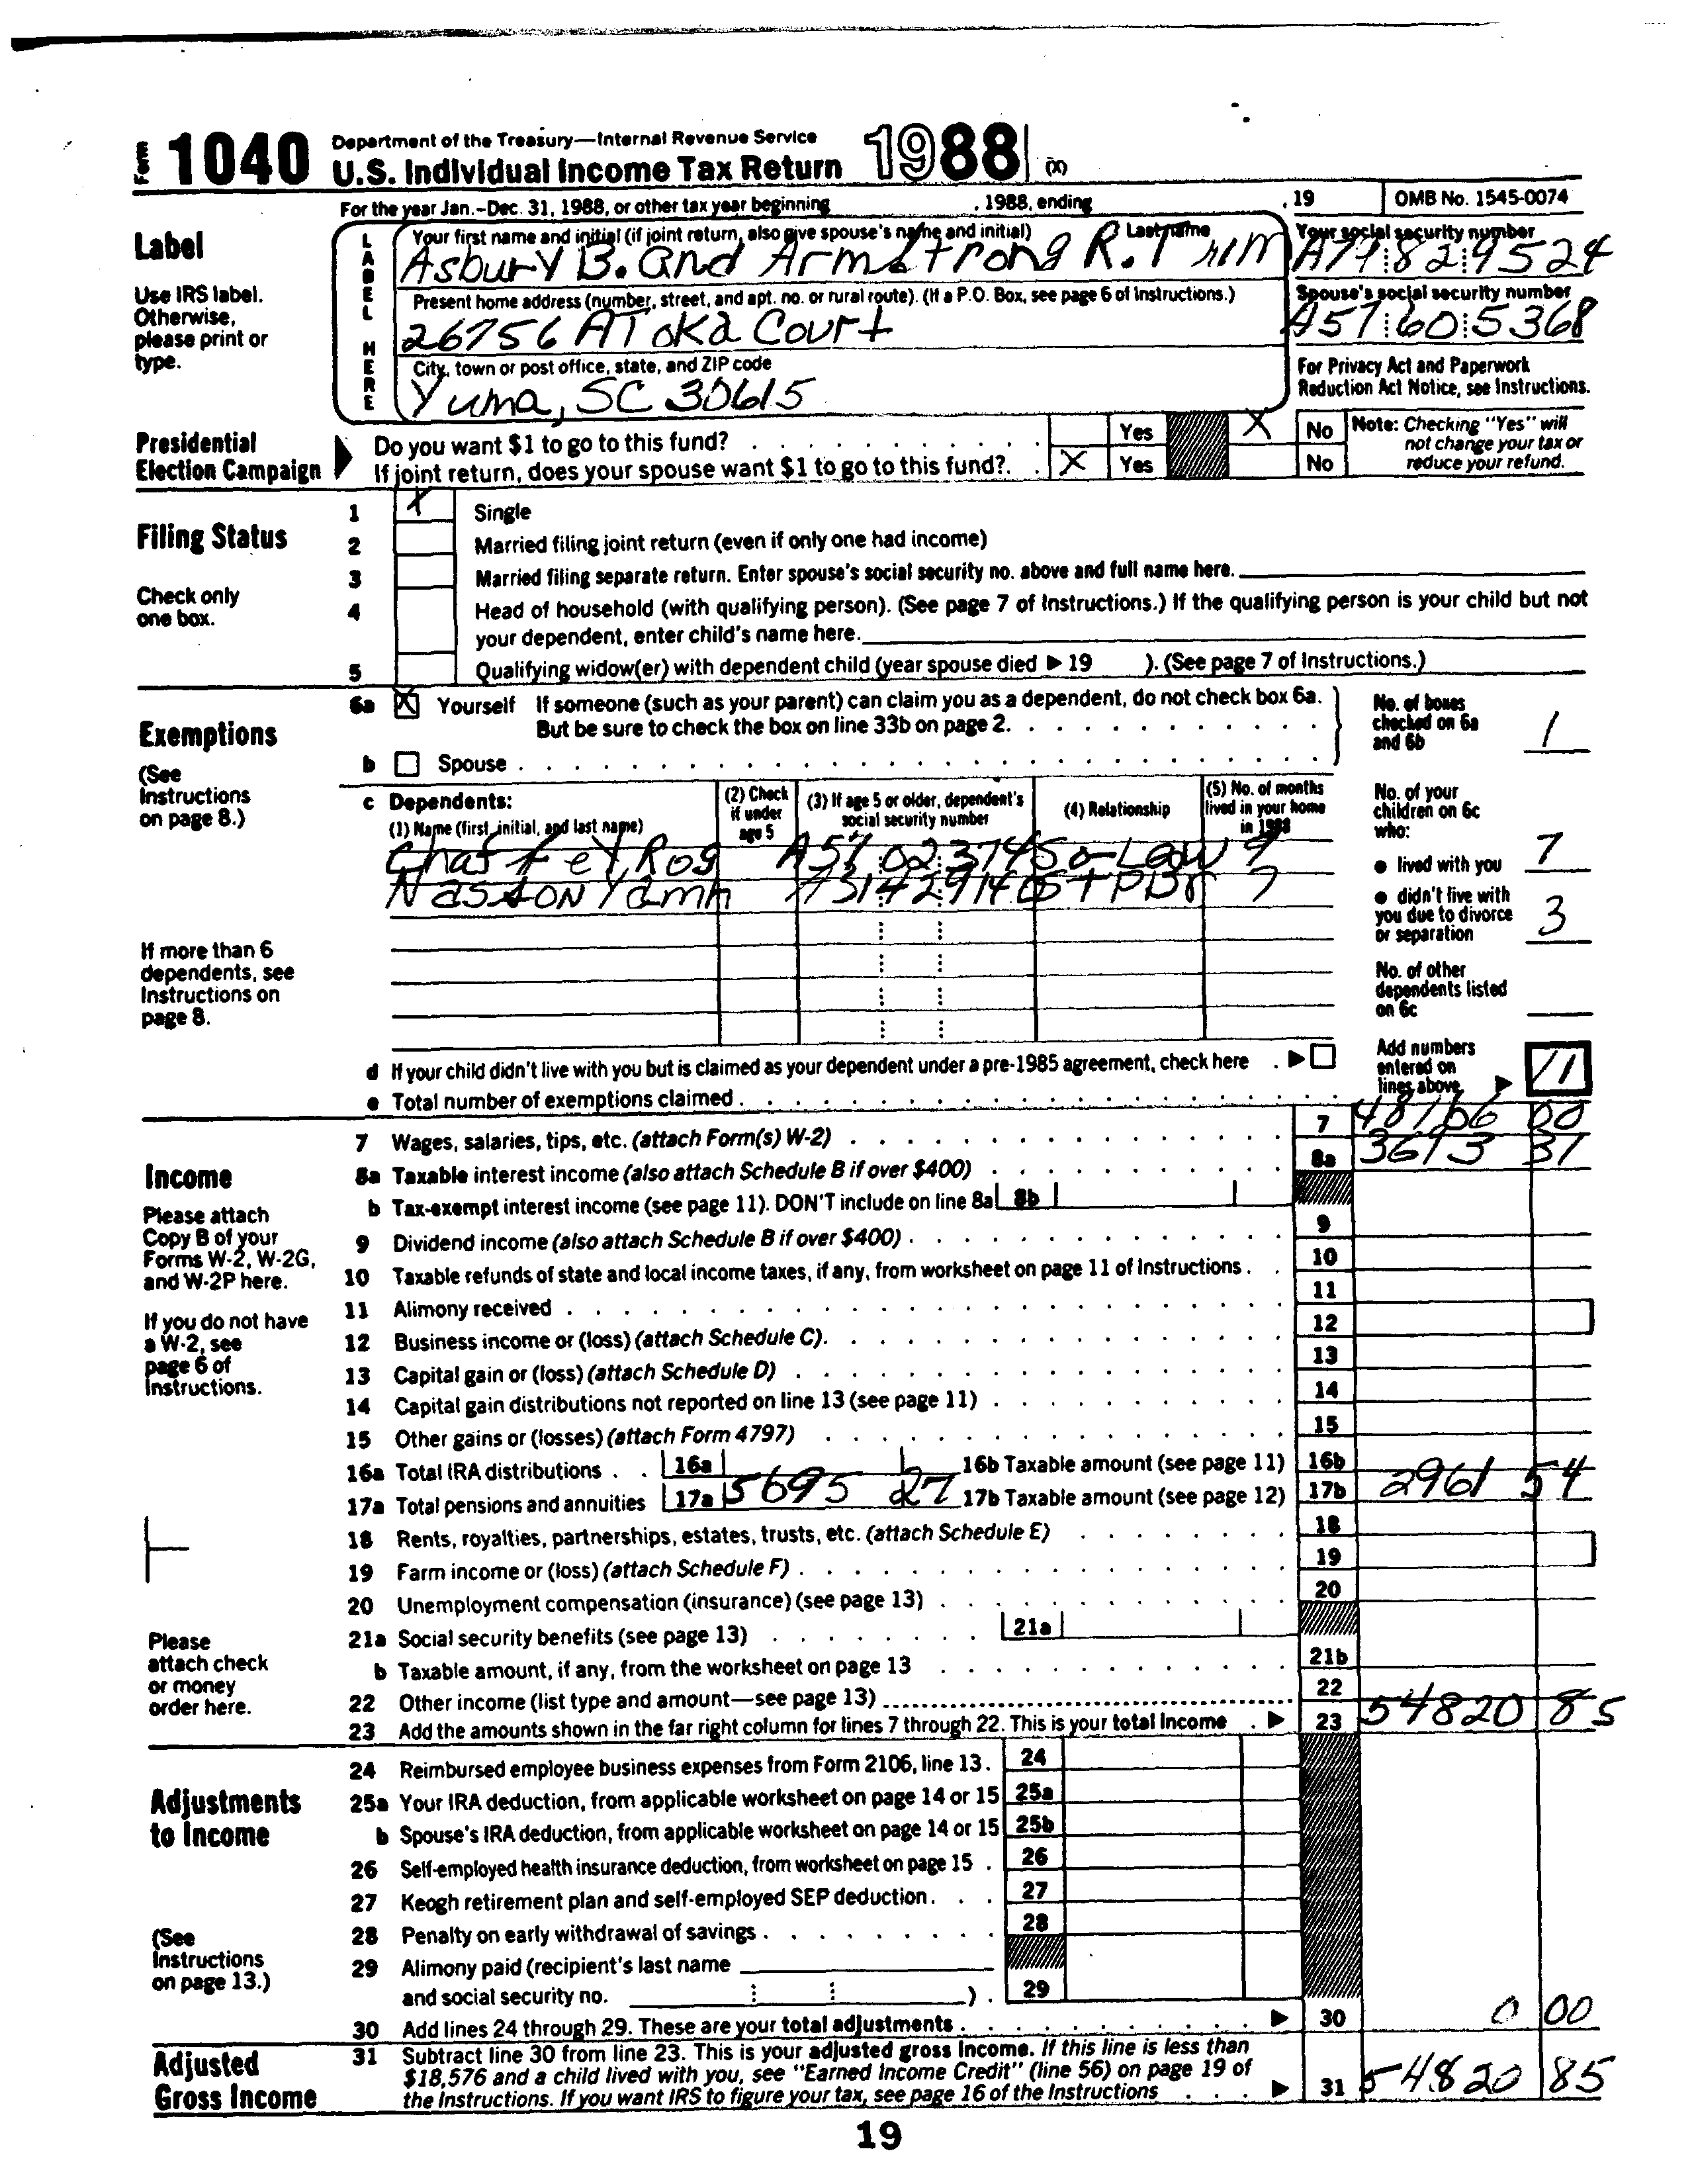 Form 1040 Department of the Treasury—Internal Revenue Service
U.S. Individual Income Tax Return 1988 (X)
For the year Jan.-Dec. 31, 1988, or other tax year beginning , 1988, ending , 19 OMB No. 1545-0074
Label
Use IRS label.
Otherwise,
please print or
type.
LABEL HERE
Your first name and initial (if joint return, also give spouse's name and initial) Last name
Asbury B. and Armstrong R. Trim
Your social security number
A77 82 9524
Present home address (number, street, and apt. no. or rural route). (If a P.O. Box, see page 6 of Instructions.)
26756 AToka Court
Spouse's social security number
A57 60 5368
City, town or post office, state, and ZIP code
Yuma, SC 30615
For Privacy Act and Paperwork
Reduction Act Notice, see Instructions.
Presidential
Election Campaign
Do you want $1 to go to this fund? Yes X No
If joint return, does your spouse want $1 to go to this fund? X Yes No
Note: Checking "Yes" will
not change your tax or
reduce your refund.
Filing Status
Check only
one box.
1 X Single
2 Married filing joint return (even if only one had income)
3 Married filing separate return. Enter spouse's social security no. above and full name here.
4 Head of household (with qualifying person). (See page 7 of Instructions.) If the qualifying person is your child but not
your dependent, enter child's name here.
5 Qualifying widow(er) with dependent child (year spouse died ▶ 19 ). (See page 7 of Instructions.)
Exemptions
(See
Instructions
on page 8.)
6a X Yourself If someone (such as your parent) can claim you as a dependent, do not check box 6a.
But be sure to check the box on line 33b on page 2.
b Spouse
No. of boxes
checked on 6a
and 6b 1
c Dependents:
(1) Name (first, initial, and last name)
(2) Check
if under
age 5
(3) If age 5 or older, dependent's
social security number
(4) Relationship
(5) No. of months
lived in your home
in 1988
Chaffey Rog A57 02 3745 o-Law 9
Nasson Yamn
No. of your
children on 6c
who:
● lived with you 7
● didn't live with
you due to divorce
or separation 3
No. of other
dependents listed
on 6c
If more than 6
dependents, see
Instructions on
page 8.
d If your child didn't live with you but is claimed as your dependent under a pre-1985 agreement, check here ▶
e Total number of exemptions claimed
Add numbers
entered on
lines above ▶ 11
Income
Please attach
Copy B of your
Forms W-2, W-2G,
and W-2P here.
If you do not have
a W-2, see
page 6 of
Instructions.
Please
attach check
or money
order here.
7 Wages, salaries, tips, etc. (attach Form(s) W-2) 7 48166 00
8a Taxable interest income (also attach Schedule B if over $400) 8a 3693 31
b Tax-exempt interest income (see page 11). DON'T include on line 8a 8b
9 Dividend income (also attach Schedule B if over $400) 9
10 Taxable refunds of state and local income taxes, if any, from worksheet on page 11 of Instructions 10
11 Alimony received 11
12 Business income or (loss) (attach Schedule C) 12
13 Capital gain or (loss) (attach Schedule D) 13
14 Capital gain distributions not reported on line 13 (see page 11) 14
15 Other gains or (losses) (attach Form 4797) 15
16a Total IRA distributions 16a 16b Taxable amount (see page 11) 16b
17a Total pensions and annuities 17a 5695 27 17b Taxable amount (see page 12) 17b 2961 54
18 Rents, royalties, partnerships, estates, trusts, etc. (attach Schedule E) 18
19 Farm income or (loss) (attach Schedule F) 19
20 Unemployment compensation (insurance) (see page 13) 20
21a Social security benefits (see page 13) 21a
b Taxable amount, if any, from the worksheet on page 13 21b
22 Other income (list type and amount—see page 13) 22
23 Add the amounts shown in the far right column for lines 7 through 22. This is your total income ▶ 23 54820 85
Adjustments
to Income
(See
Instructions
on page 13.)
24 Reimbursed employee business expenses from Form 2106, line 13 24
25a Your IRA deduction, from applicable worksheet on page 14 or 15 25a
b Spouse's IRA deduction, from applicable worksheet on page 14 or 15 25b
26 Self-employed health insurance deduction, from worksheet on page 15 26
27 Keogh retirement plan and self-employed SEP deduction 27
28 Penalty on early withdrawal of savings 28
29 Alimony paid (recipient's last name
and social security no. ) 29
30 Add lines 24 through 29. These are your total adjustments ▶ 30 0 00
Adjusted
Gross Income
31 Subtract line 30 from line 23. This is your adjusted gross income. If this line is less than
$18,576 and a child lived with you, see "Earned Income Credit" (line 56) on page 19 of
the Instructions. If you want IRS to figure your tax, see page 16 of the Instructions ▶ 31 54820 85
19